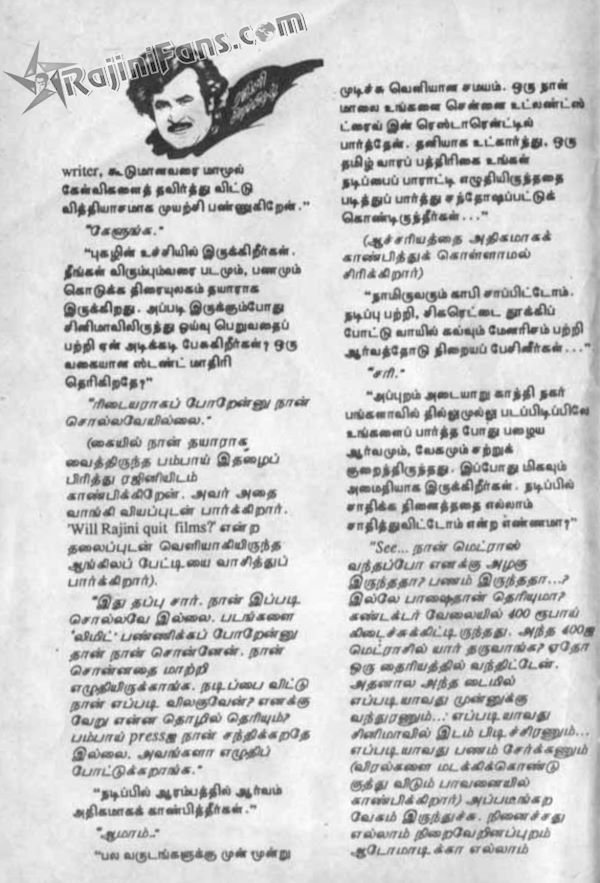 RajiniFans.com
writer, கூடுமானவரை மாமூல்
கேள்விகளைத் தவிர்த்து விட்டு
வித்தியாசமாக முயற்சி பண்ணுகிறேன்."
"கேளுங்க."
"புகழின் உச்சியில் இருக்கிறீர்கள்.
நீங்கள் விரும்பும்வரை படமும், பணமும்
கொடுக்க திரையுலகம் தயாராக
இருக்கிறது. அப்படி இருக்கும்போது
சினிமாவிலிருந்து ஓய்வு பெறுவதைப்
பற்றி ஏன் அடிக்கடி பேசுகிறீர்கள்? ஒரு
வகையான ஸ்டண்ட் மாதிரி
தெரிகிறதே?"
"ரிடையராகப் போறேன்னு நான்
சொல்லவேயில்லை."
(கையில் நான் தயாராக
வைத்திருந்த பம்பாய் இதழைப்
பிரித்து ரஜினியிடம்
காண்பிக்கிறேன். அவர் அதை
வாங்கி வியப்புடன் பார்க்கிறார்.
'Will Rajini quit films?' என்ற
தலைப்புடன் வெளியாகியிருந்த
ஆங்கிலப் பேட்டியை வாசித்துப்
பார்க்கிறார்).
"இது தப்பு சார். நான் இப்படி
சொல்லவே இல்லை. படங்களை
'லிமிட்' பண்ணிக்கப் போறேன்னு
தான் நான் சொன்னேன். நான்
சொன்னதை மாற்றி
எழுதியிருக்காங்க. நடிப்பை விட்டு
நான் எப்படி விலகுவேன்? எனக்கு
வேறு என்ன தொழில் தெரியும்?
பம்பாய் pressஐ நான் சந்திக்கறதே
இல்லை. அவங்களா எழுதிப்
போட்டுக்கறாங்க."
"நடிப்பில் ஆரம்பத்தில் ஆர்வம்
அதிகமாகக் காண்பித்தீர்கள்."
"ஆமாம்.."
"பல வருடங்களுக்கு முன் மூன்று
முடிச்சு வெளியான சமயம். ஒரு நாள்
மாலை உங்களை சென்னை உட்லண்ட்ஸ்
ட்ரைவ் இன் ரெஸ்டாரென்ட்டில்
பார்த்தேன். தனியாக உட்கார்ந்து, ஒரு
தமிழ் வாரப் பத்திரிகை உங்கள்
நடிப்பைப் பாராட்டி எழுதியிருந்ததை
படித்துப் பார்த்து சந்தோஷப்பட்டுக்
கொண்டிருந்தீர்கள்..."
(ஆச்சரியத்தை அதிகமாகக்
காண்பித்துக் கொள்ளாமல்
சிரிக்கிறார்)
"நாமிருவரும் காபி சாப்பிட்டோம்.
நடிப்பு பற்றி, சிகரெட்டை தூக்கிப்
போட்டு வாயில் கவ்வும் மேனரிசம் பற்றி
ஆர்வத்தோடு நிறையப் பேசினீர்கள்..."
"சரி."
"அப்புறம் அடையாறு காந்தி நகர்
பங்களாவில் தில்லுமுல்லு படப்பிடிப்பிலே
உங்களைப் பார்த்த போது பழைய
ஆர்வமும், வேகமும் சற்றுக்
குறைந்திருந்தது. இப்போது மிகவும்
அமைதியாக இருக்கிறீர்கள். நடிப்பில்
சாதிக்க நினைத்ததை எல்லாம்
சாதித்துவிட்டோம் என்ற எண்ணமா?"
"See... நான் மெட்ராஸ்
வந்தப்போ எனக்கு அழகு
இருந்ததா? பணம் இருந்ததா...?
இல்லே பாஷைதான் தெரியுமா?
கண்டக்டர் வேலையில் 400 ரூபாய்
கிடைச்சுக்கிட்டிருந்தது. அந்த 400ஐ
மெட்ராசில் யார் தருவாங்க? ஏதோ
ஒரு தைரியத்தில் வந்திட்டேன்.
அதனால அந்த டைமில்
எப்படியாவது முன்னுக்கு
வந்துரணும்...! எப்படியாவது
சினிமாவில் இடம் பிடிச்சிரணும்...
எப்படியாவது பணம் சேர்க்கணும்
(விரல்களை மடக்கிக்கொண்டு
குத்து விடும் பாவனையில்
காண்பிக்கிறார்) அப்படீங்கற
வேகம் இருந்துச்சு. நினைச்சது
எல்லாம் நிறைவேறினப்புறம்
ஆடோமாடிக்கா எல்லாம்